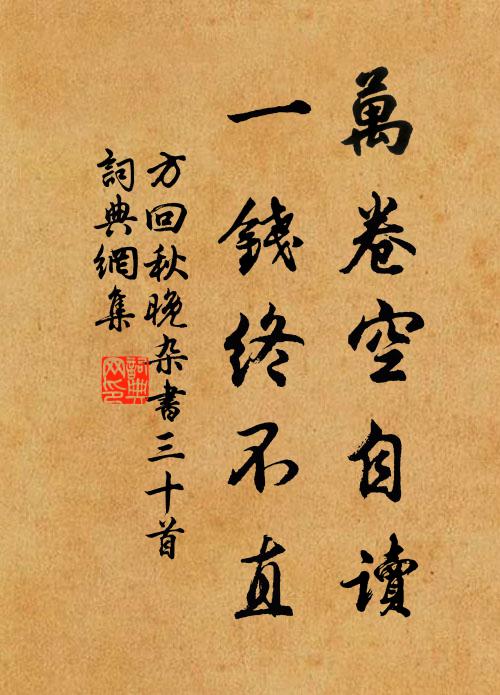 萬卷空自讀
一錢終不直
方回秋晚杂書三十首
詞典網集
詞典網印